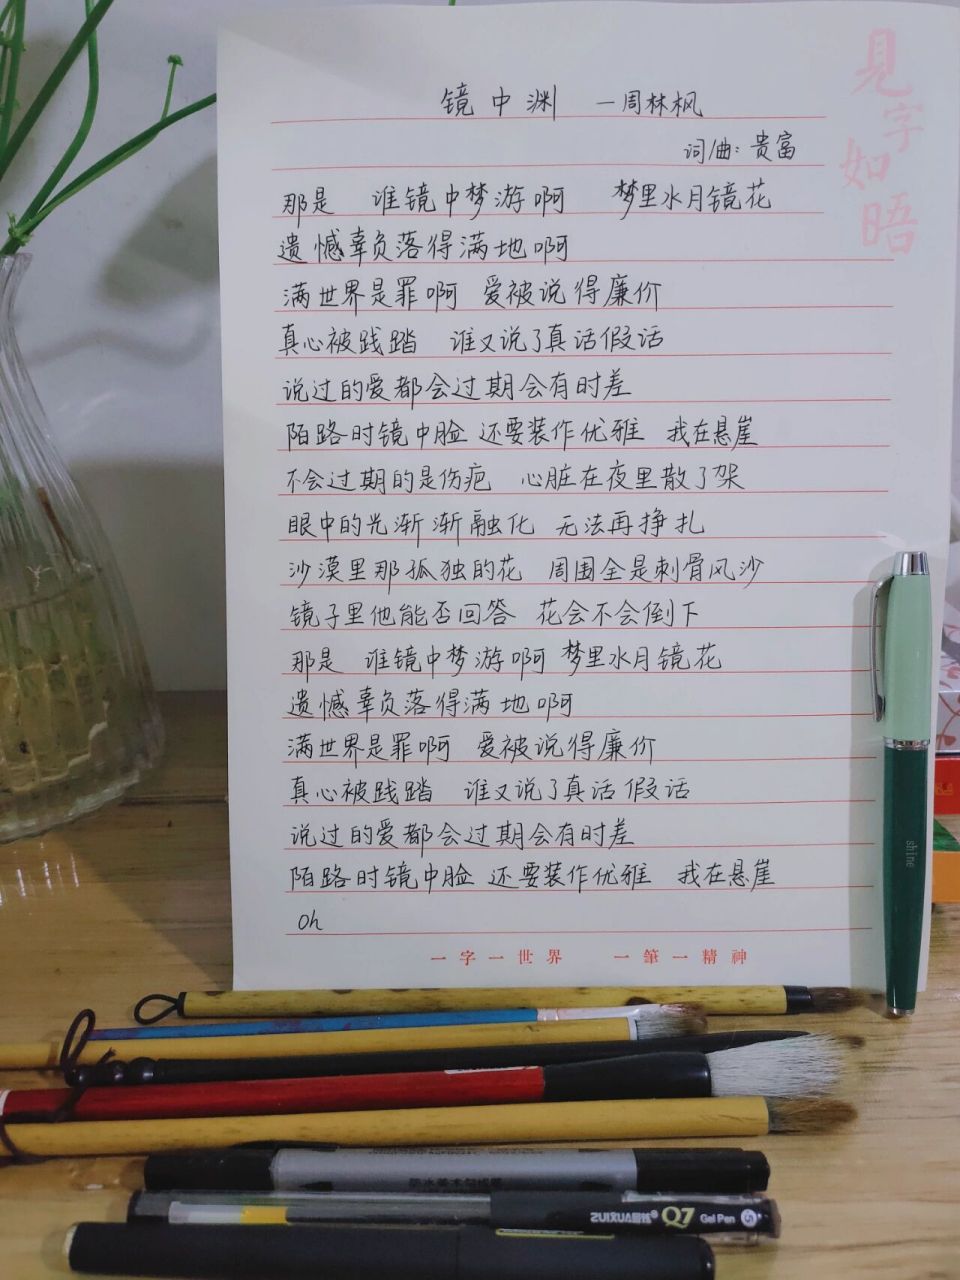 見字如晤
镜中渊 一周林枫
词/曲:贵富
那是 谁镜中梦游啊 梦里水月镜花
遗憾辜负落得满地啊
满世界是罪啊 爱被说得廉价
真心被践踏 谁又说了真话假话
说过的爱都会过期会有时差
陌路时镜中脸 还要装作优雅 我在悬崖
不会过期的是伤疤 心脏在夜里散了架
眼中的光渐渐融化 无法再挣扎
沙漠里那孤独的花 周围全是刺骨风沙
镜子里他能否回答 花会不会倒下
那是 谁镜中梦游啊 梦里水月镜花
遗憾辜负落得满地啊
满世界是罪啊 爱被说得廉价
真心被践踏 谁又说了真话假话
说过的爱都会过期会有时差
陌路时镜中脸 还要装作优雅 我在悬崖
oh
一字一世界 一筆一精神
shine
ZUIXUA Q7 Gel Pen 5